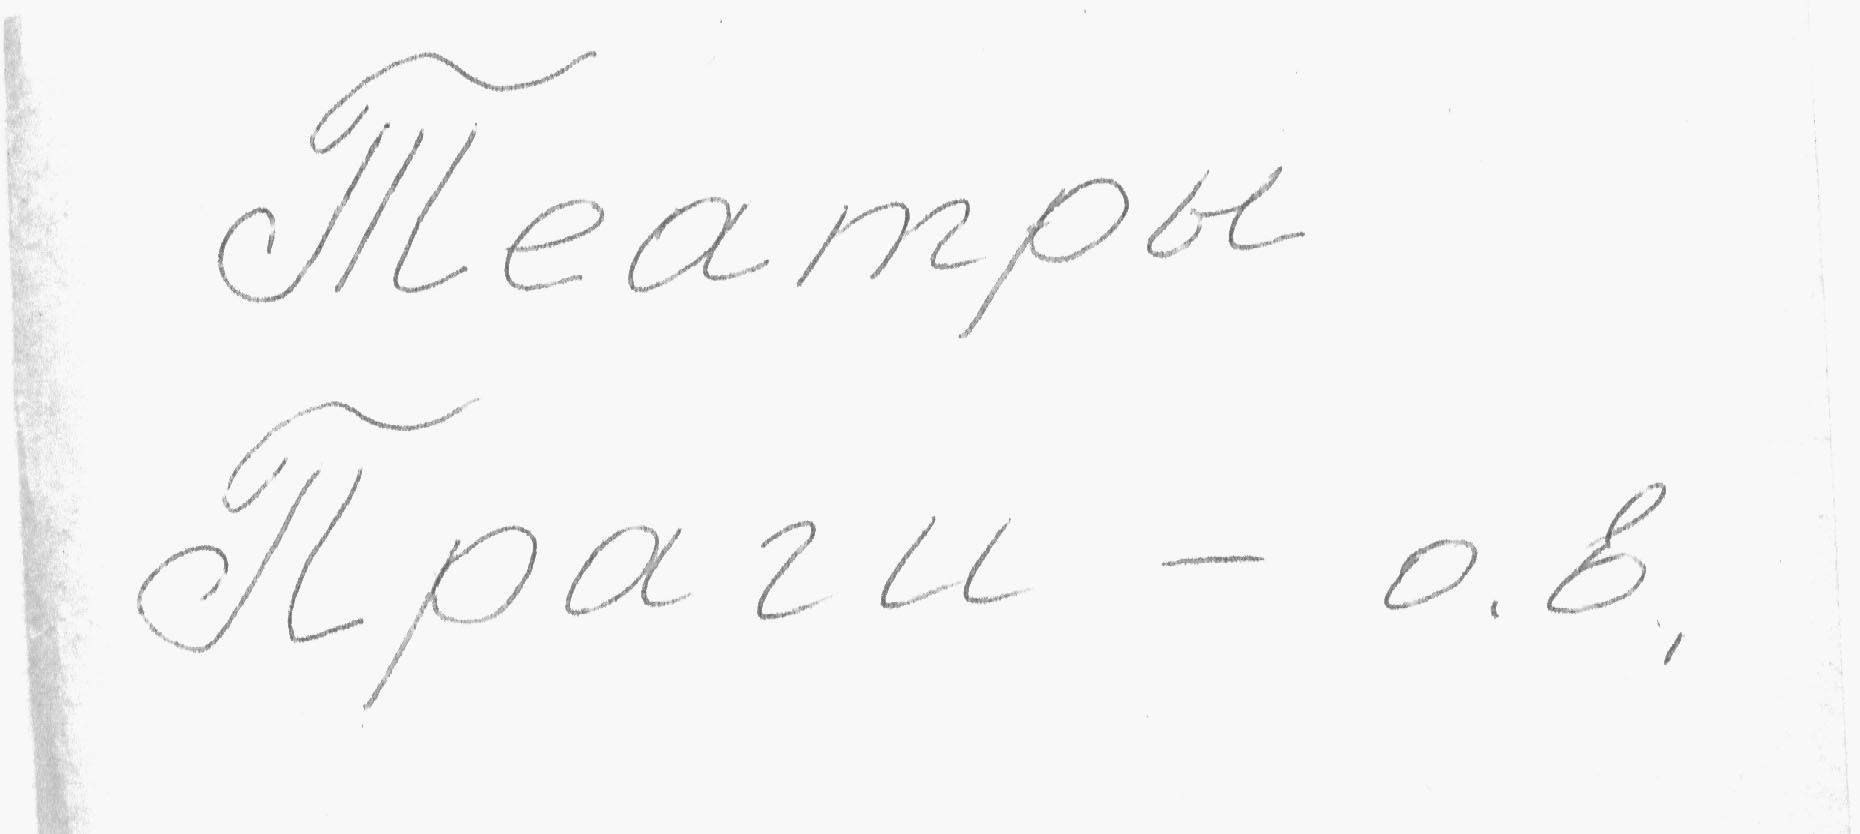 Театры
Праги - о.в,